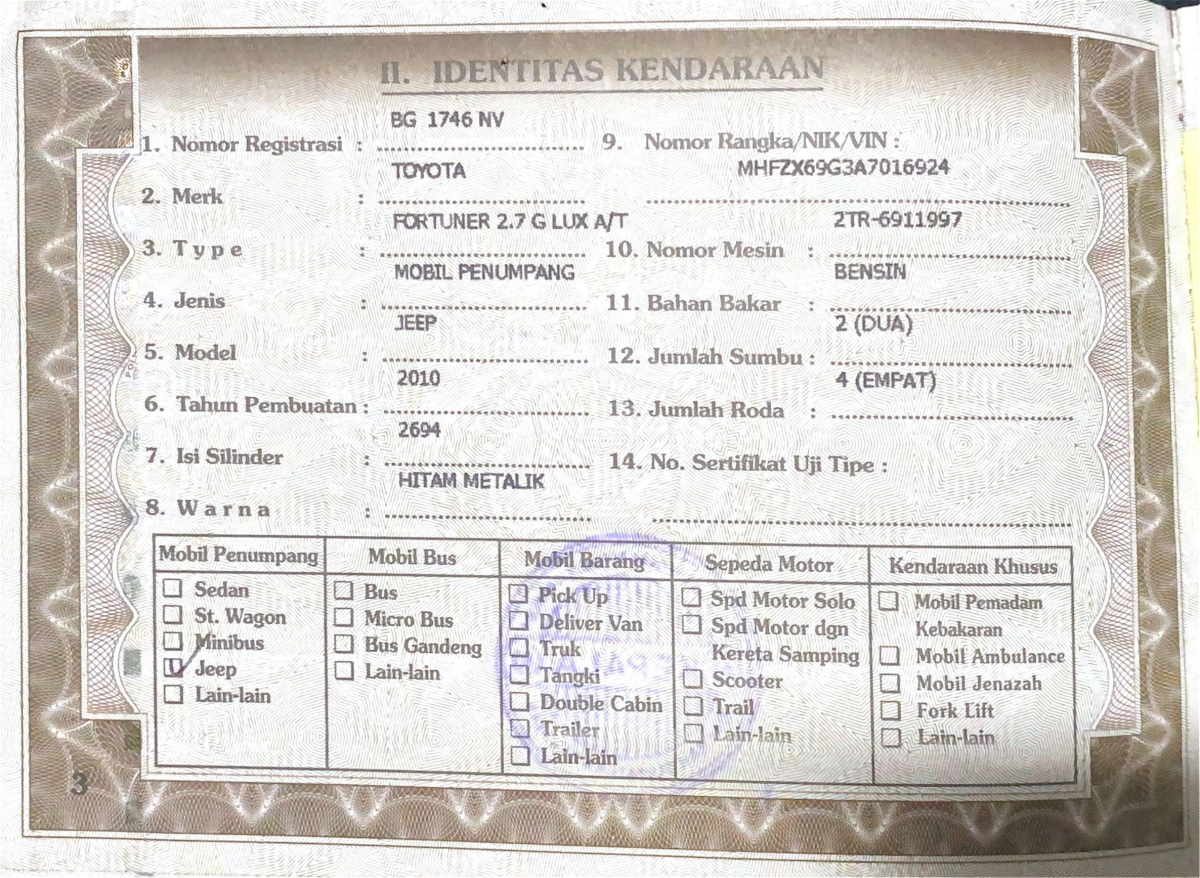 II. IDENTITAS KENDARAAN
1. Nomor Registrasi : BG 1746 NV
2. Merk : TOYOTA
3. Type : FORTUNER 2.7 G LUX A/T
4. Jenis : MOBIL PENUMPANG
5. Model : JEEP
6. Tahun Pembuatan : 2010
7. Isi Silinder : 2694
8. Warna : HITAM METALIK
9. Nomor Rangka/NIK/VIN :
MHFZX69G3A7016924
10. Nomor Mesin : 2TR-6911997
11. Bahan Bakar : BENSIN
12. Jumlah Sumbu : 2 (DUA)
13. Jumlah Roda : 4 (EMPAT)
14. No. Sertifikat Uji Tipe :
Mobil Penumpang
Sedan
St. Wagon
Minibus
Jeep
Lain-lain
Mobil Bus
Bus
Micro Bus
Bus Gandeng
Lain-lain
Mobil Barang
Pick Up
Deliver Van
Truk
Tangki
Double Cabin
Trailer
Lain-lain
Sepeda Motor
Spd Motor Solo
Spd Motor dgn
Kereta Samping
Scooter
Trail
Lain-lain
Kendaraan Khusus
Mobil Pemadam
Kebakaran
Mobil Ambulance
Mobil Jenazah
Fork Lift
Lain-lain
3